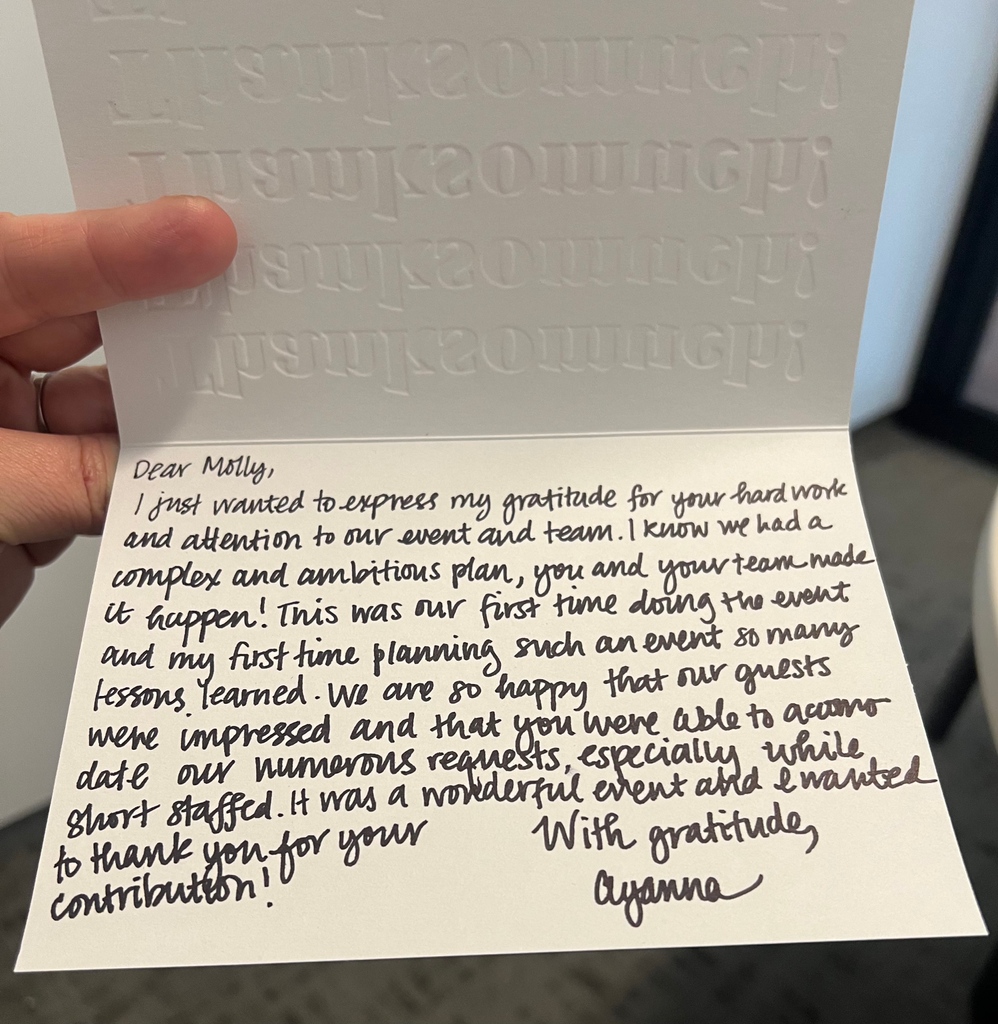 Thanksomuch!
Thanksomuch!
Thanksomuch!
Thanksomuch!
Dear Molly,
I just wanted to express my gratitude for your hard work
and attention to our event and team. I know we had a
complex and ambitious plan, you and your team made
it happen! This was our first time doing the event
and my first time planning such an event so many
lessons learned. We are so happy that our guests
were impressed and that you were able to accomo
date our numerous requests, especially while
short staffed. It was a wonderful event and I wanted
to thank you for your
contribution!
With gratitude,
Ayanna